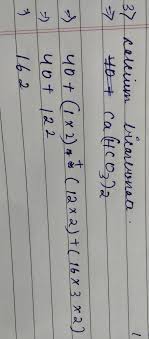 3) Calcium bicarbonate.
⇒ Ca(HCO₃)₂
⇒ 40 + (1×2) + (12×2) + (16×3×2)
⇒ 40 + 122
⇒ 162